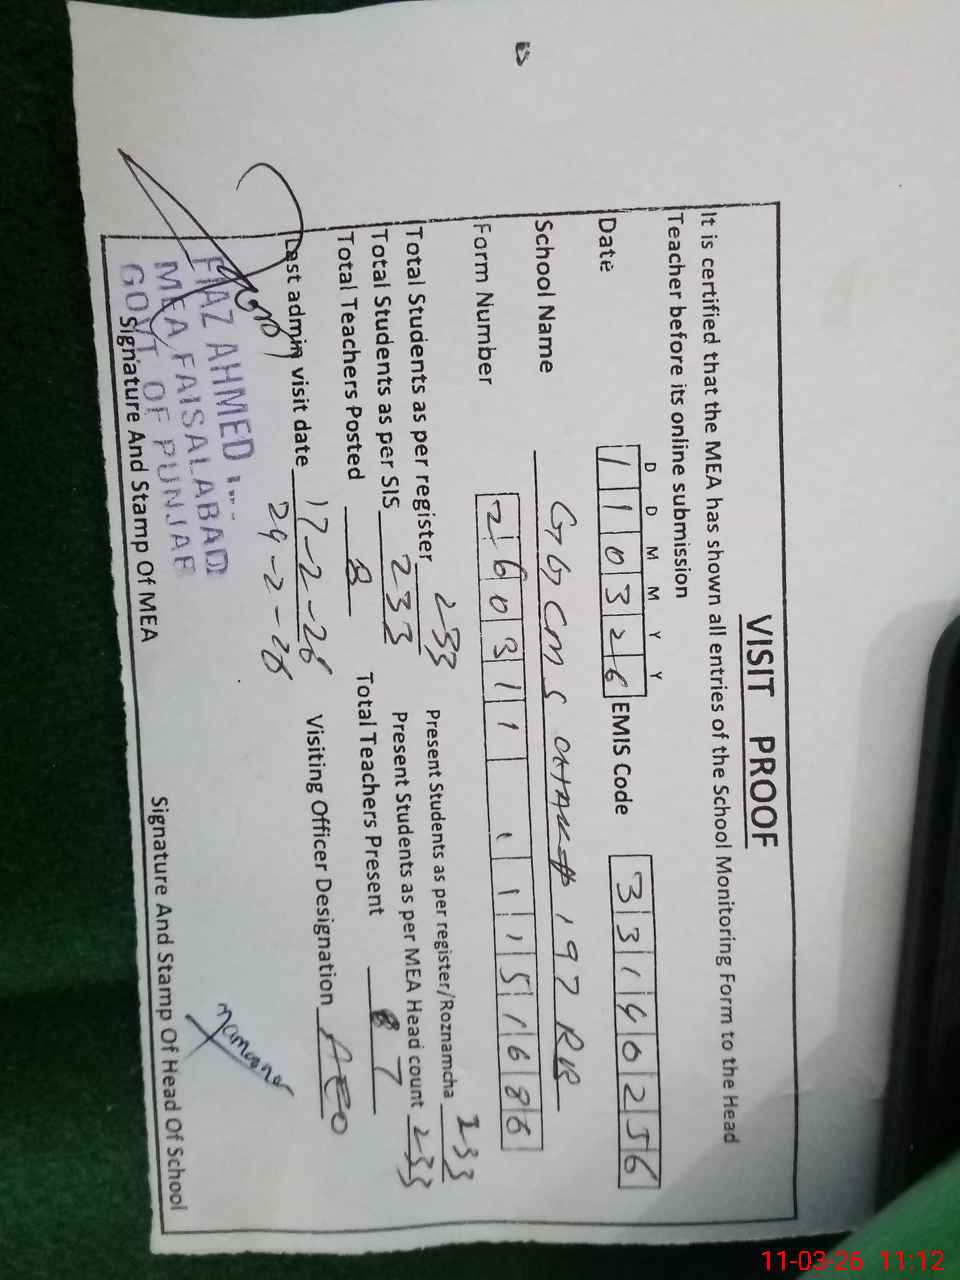 VISIT PROOF
It is certified that the MEA has shown all entries of the School Monitoring Form to the Head
Teacher before its online submission
D D M M Y Y
Date 110326 EMIS Code 33140256
School Name GGCMS # 197 RB
Form Number 260311
Total Students as per register 233 Present Students as per register/Roznamcha 233
Total Students as per SIS 233 Present Students as per MEA Head count 233
Total Teachers Posted 8 Total Teachers Present 7
Last admin visit date 17-2-26 Visiting Officer Designation AEO
24-2-26
FIAZ AHMED
MEA FAISALABAD
GOVT. OF PUNJAB
Signature And Stamp Of MEA Signature And Stamp Of Head Of School
11-03-26 11:12